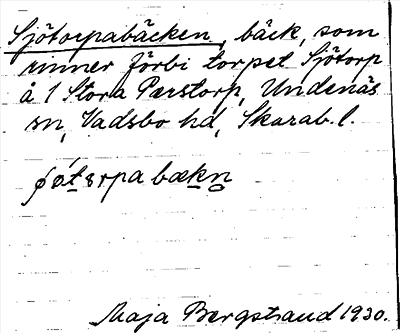 Sjötorpabäcken, bäck, som
rinner förbi torpet Sjötorp
å 1 Stora Perstorp, Undenäs
sn, Vadsbo hd, Skarab. l.
bækn
Maja Bergstrand 1930.